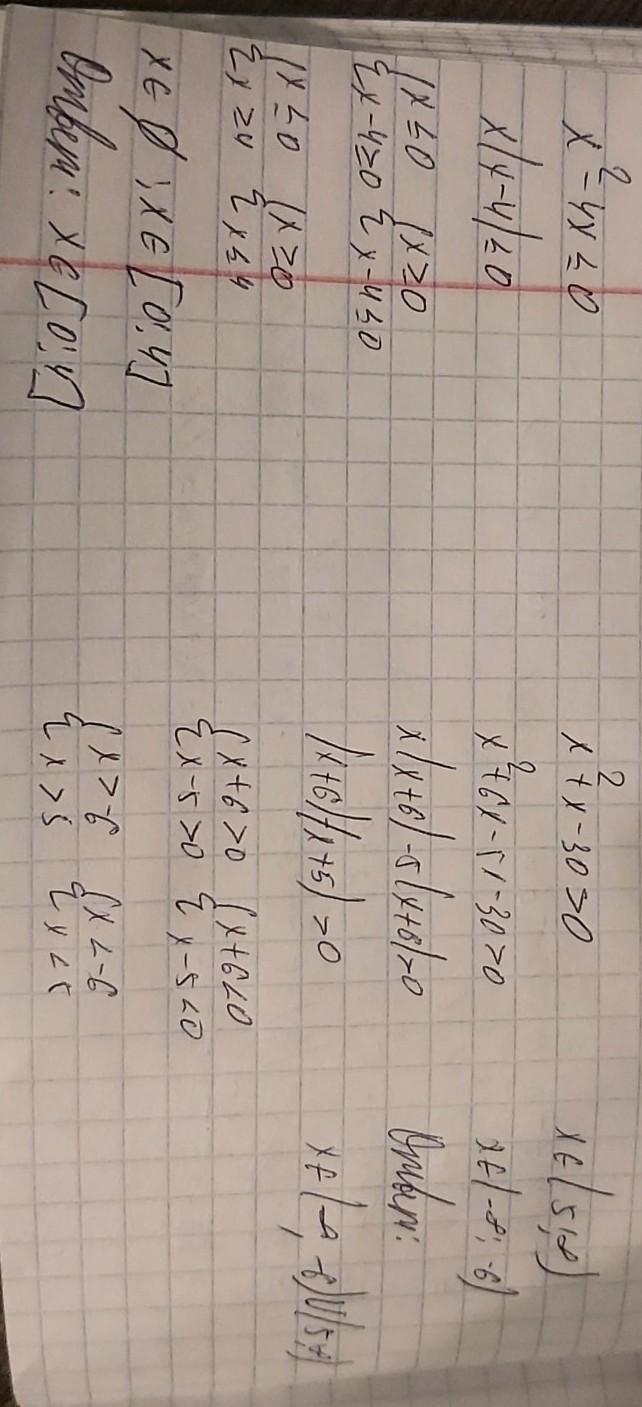 x² - 4x ≤ 0
x(x-4) ≤ 0
{x ≤ 0 {x ≥ 0
{x-4 ≥ 0 {x-4 ≤ 0
{x ≤ 0 {x ≥ 0
{x ≥ 4 {x ≤ 4
x ∈ ∅ ; x ∈ [0; 4]
Ответ: x ∈ [0; 4]
x² + x - 30 > 0
x² + 6x - 5x - 30 > 0
x(x+6) - 5(x+6) > 0
(x+6)(x+5) > 0
{x+6 > 0 {x+6 < 0
{x-5 > 0 {x-5 < 0
{x > -6 {x < -6
{x > 5 {x <
x ∈ (5; ∞)
x ∈ (-∞; -6)
Ответ:
x ∈ (-∞, -6) U (5, ∞)